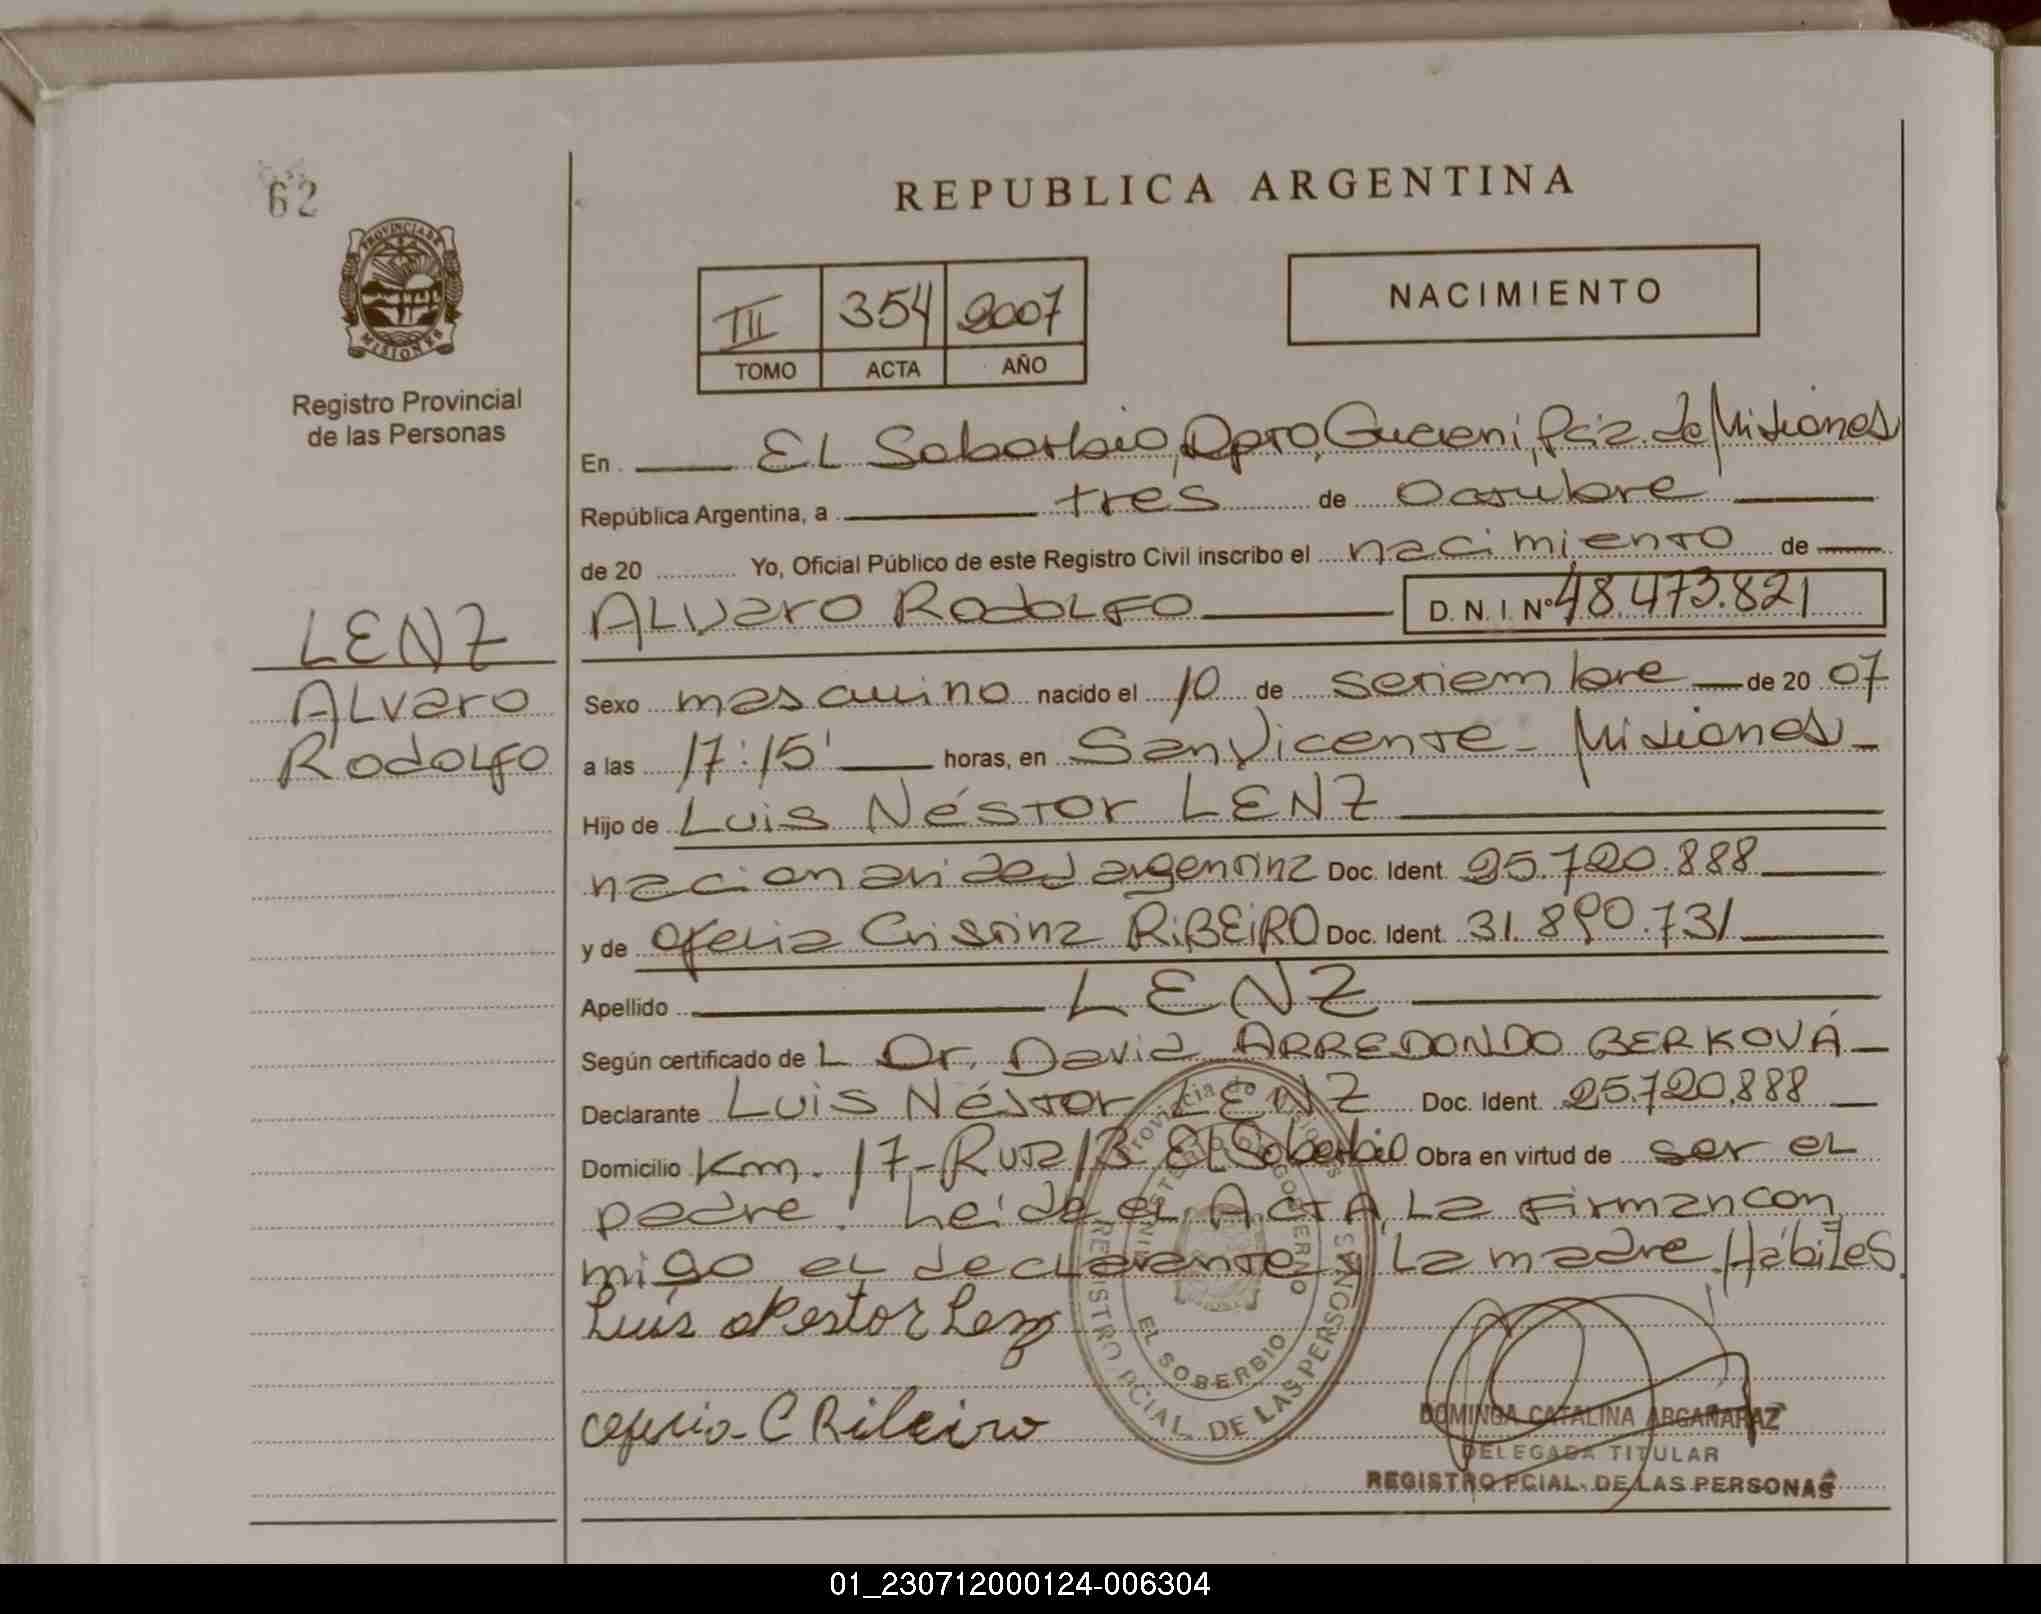 62
REPUBLICA ARGENTINA
PROVINCIA DE
MISIONES
III 354 2007
TOMO ACTA AÑO
NACIMIENTO
Registro Provincial
de las Personas
En EL Soberbio, Dpto, Guarani, Pcia. de Misiones
República Argentina, a tres de Octubre
de 20 Yo, Oficial Público de este Registro Civil inscribo el nacimiento de
ALVaro RodoLFO D. N. I. Nº 48.473.821
LENZ
ALvaro
RodoLfo
Sexo masculino nacido el 10 de setiembre de 20 07
a las 17:15' horas, en San Vicente - Misiones
Hijo de Luis Néstor LENZ
nacionalidad argentina Doc. Ident. 25.720.888
y de Ofelia Cristina RiBEiRO Doc. Ident. 31.890.731
Apellido LENZ
Según certificado de L Dr. David ARREDONDO BERKOVÁ
Declarante Luis Néstor LENZ Doc. Ident. 25.720.888
Domicilio Km. 17 - Ruta 13 El Soberbio Obra en virtud de ser eL
padre. Leida eL ActA, La Firman con
migo eL declarante y La madre. Hábiles.
Luis Nestor Lenz
Ofelia C Ribeiro
Provincia de Misiones
MINISTERIO DE GOBIERNO
EL SOBERBIO
REGISTRO PCIAL. DE LAS PERSONAS
DOMINGA CATALINA ARGAÑARAZ
DELEGADA TITULAR
REGISTRO PCIAL. DE LAS PERSONAS
01_230712000124-006304